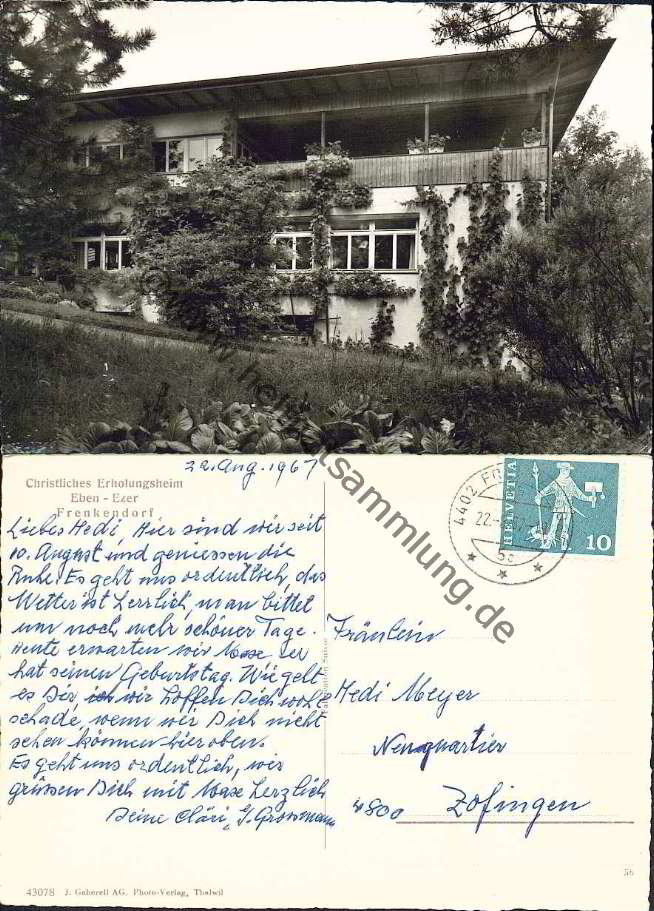 22. Aug. 1967
Christliches Erholungsheim
Eben - Ezer
Frenkendorf
Liebes Hedi, Hier sind wir seit
10. August und geniessen die
Ruhe. Es geht uns ordentlich, das
Wetter ist herrlich, man bittet
um noch mehr schöner Tage.
Heute erwarten wir
hat seinen Geburtstag. Wie geht
es Dir, wir hoffen Dich wohl
schade, wenn wir Dich nicht
sehen können hier oben.
Es geht uns ordentlich, wir
grüssen Dich mit herzlich
Deine Cläri, Grossmann
4402
22.
HELVETIA
10
Fräulein
Hedi Meyer
Neuquartier
4800 Zofingen
43078 J. Gaberell AG. Photo-Verlag, Thalwil
56
www.heimatsammlung.de